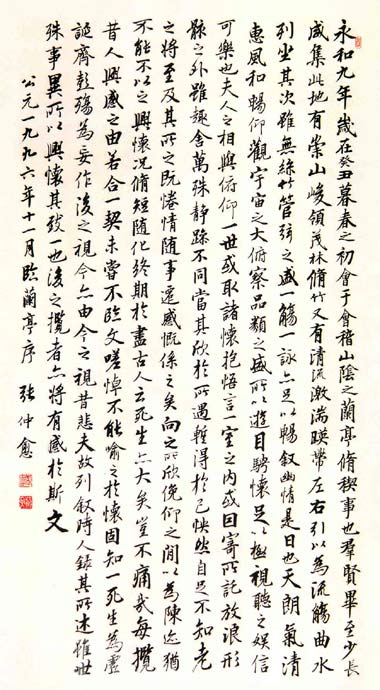 永和九年歲在癸丑暮春之初會于會稽山陰之蘭亭脩稧事也羣賢畢至少長
咸集此地有崇山峻領茂林脩竹又有清流激湍暎帶左右引以為流觴曲水
列坐其次雖無絲竹管弦之盛一觴一詠亦足以暢叙幽情是日也天朗氣清
惠風和暢仰觀宇宙之大俯察品類之盛所以遊目騁懷足以極視聽之娛信
可樂也夫人之相與俯仰一世或取諸懷抱悟言一室之内或因寄所託放浪形
骸之外雖趣舍萬殊静躁不同當其欣於所遇暫得於己怏然自足不知老
之將至及其所之既惓情随事遷感慨係之矣向之所欣俛仰之間以為陳迹猶
不能不以之興懷况脩短随化終期於盡古人云死生亦大矣豈不痛哉每攬
昔人興感之由若合一契未嘗不臨文嗟悼不能喻之於懷固知一死生為虛
誕齊彭殤為妄作後之視今亦由今之視昔悲夫故列叙時人録其所述雖世
殊事異所以興懷其致一也後之攬者亦將有感於斯文
公元一九九六年十一月臨蘭亭序 張仲愈